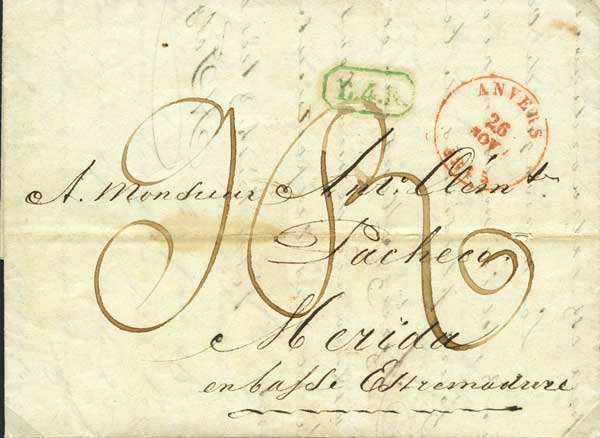 L.4.R
ANVERS
26
NOV
A. Monsieur Ant: Clem te
Pacheco.
Merida
en basse Estremadure